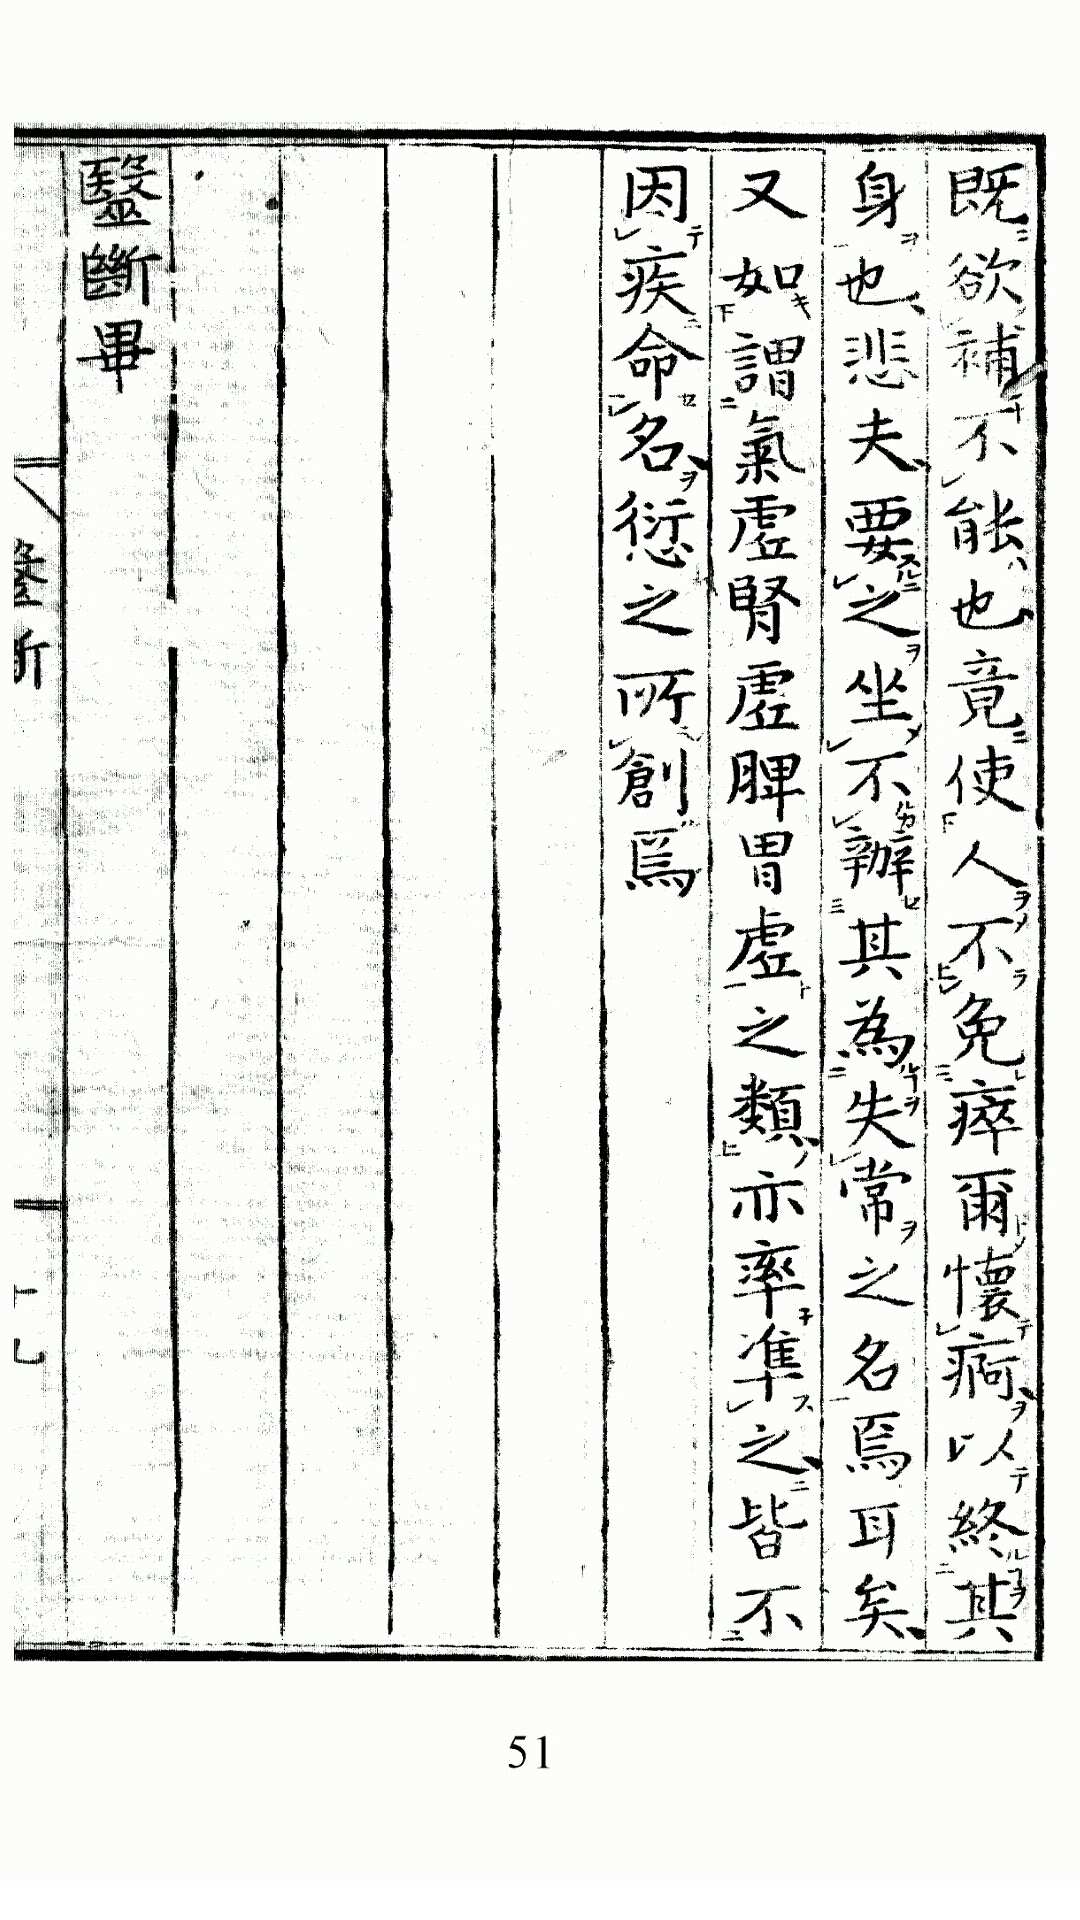 既欲補不能也竟使人不免瘁爾懷痾以終其
身也悲夫要之坐不辦其為失常之名焉耳矣
又如謂氣虛腎虛脾胃虛之類亦率準之皆不
因疾命名愆之所創焉
毉斷畢
毉斷
十九
51